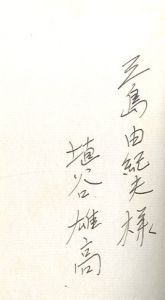 三島由紀夫様
埴谷雄高